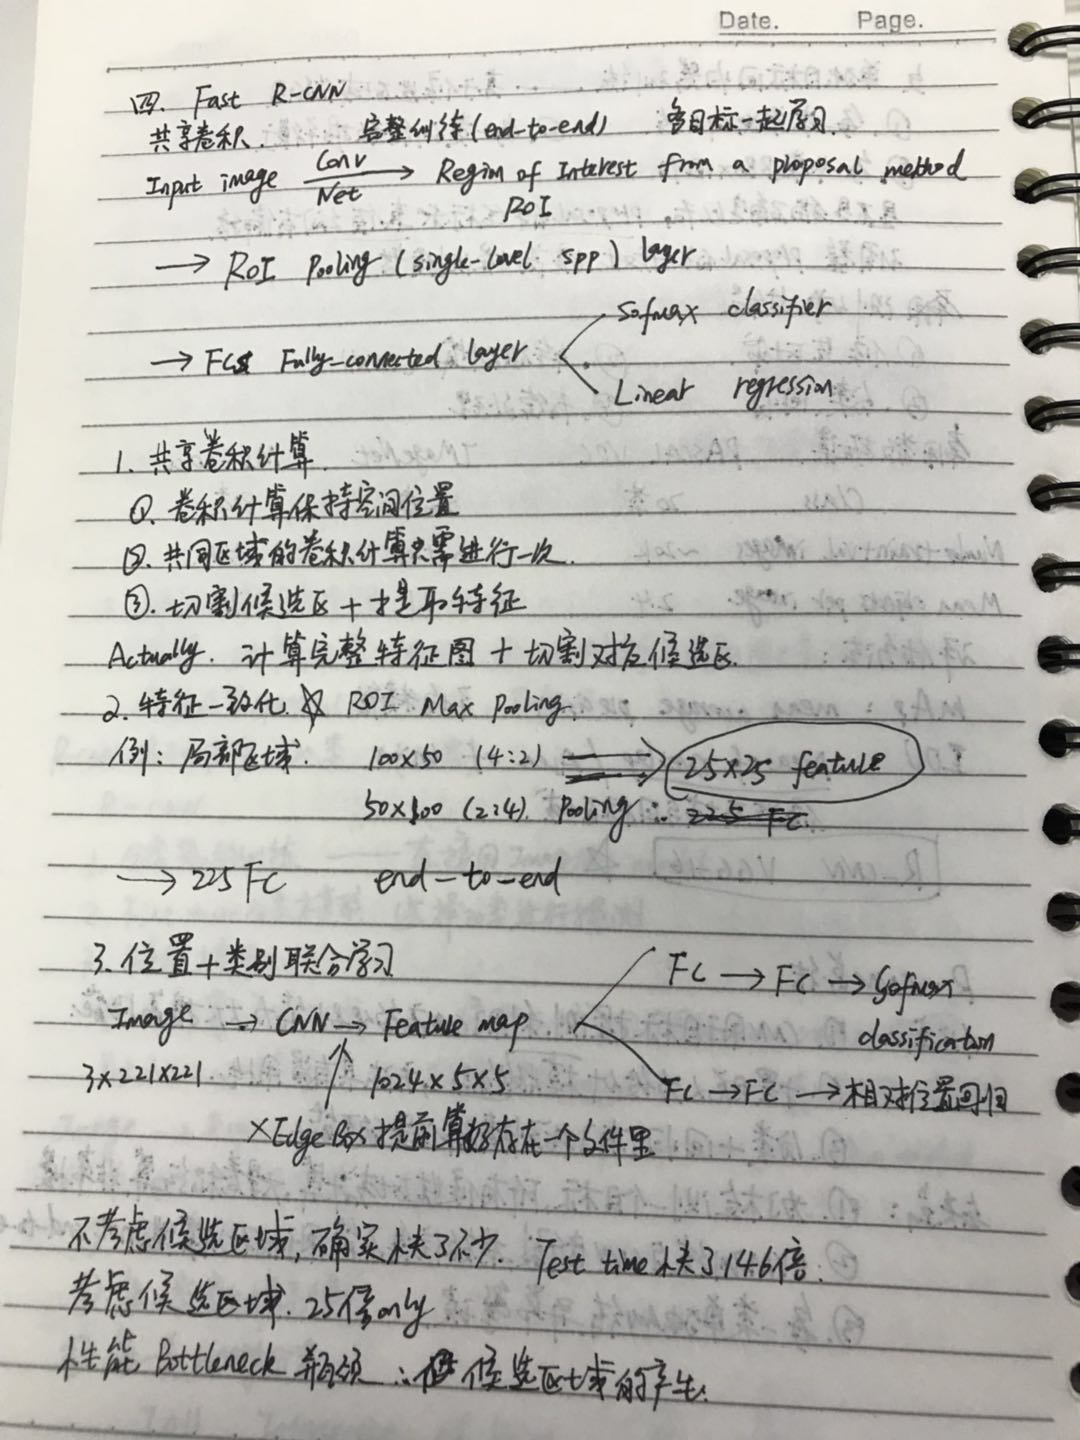 Date. Page.
四. Fast R-CNN
共享卷积. 完整训练(end-to-end) 多目标一起学习.
Input image Conv Net → Region of Interest from a proposal method
ROI
→ ROI Pooling (single-level spp) layer
Sofmax classifier
→ FCs Fully-connected layer
Linear regression
1. 共享卷积计算.
①. 卷积计算保持空间位置
②. 共同区域的卷积计算只需进行一次.
③. 切割候选区 + 提取特征
Actually. 计算完整特征图 + 切割对应候选区.
2. 特征一致化. ☆ ROI Max Pooling.
例: 局部区域. 100x50 (4:2) ⟹ 25x25 feature
50x100 (2:4). Pooling ∴ 225 FC.
→ 225 FC end-to-end
3. 位置+类别联合学习
FC → FC → Sofmax
Image → CNN → Feature map classification
3x221x221 ↑ 1024x5x5 FC → FC → 相对位置回归
×Edge Box 提前算好存在一个文件里
不考虑候选区域, 确实快了不少. Test time 快了146倍.
考虑候选区域. 25倍only
性能 Bottleneck 瓶颈 ∴ 候选区域的产生.